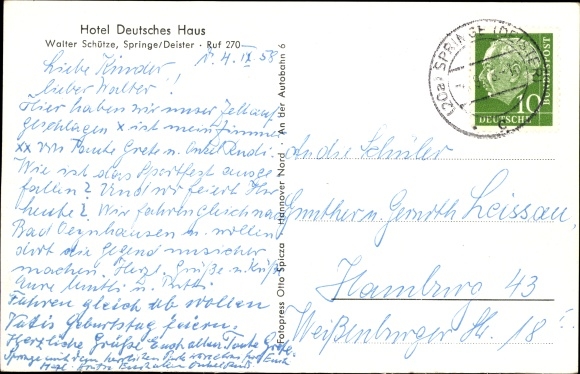 Hotel Deutsches Haus
Walter Schütze, Springe/Deister · Ruf 270
d. 4. IX 58
Liebe Kinder,
lieber Walter!
Hier haben wir unser Zelt auf
geschlagen x ist mein Zimmer
xx von Tante Grete u. Onkel Rudi.
Wie ist das Sportfest ausge
fallen? Und wir feiert Ihr
heute? Wir fahren gleich nach
Bad Oeynhausen u. wollen
dort die Gegend unsicher
machen. Herzl. Grüße u. Küße
Eure Mutti u.
Fahren gleich ab wollen
Vatis Geburtstag feiern.
Herzliche Grüße Euch allen Tante Grete.
Herzl. Grüße Euch allen Onkel Rudi
Fotopress Otto Spicza - Hannover Nord - An der Autobahn 6
(20a) SPRINGE (DEISTER)
DEUTSCHE
BUNDESPOST
10
An die Schüler
Günther u. Leissau,
Hamburg 43
Weißenburger Str. 18